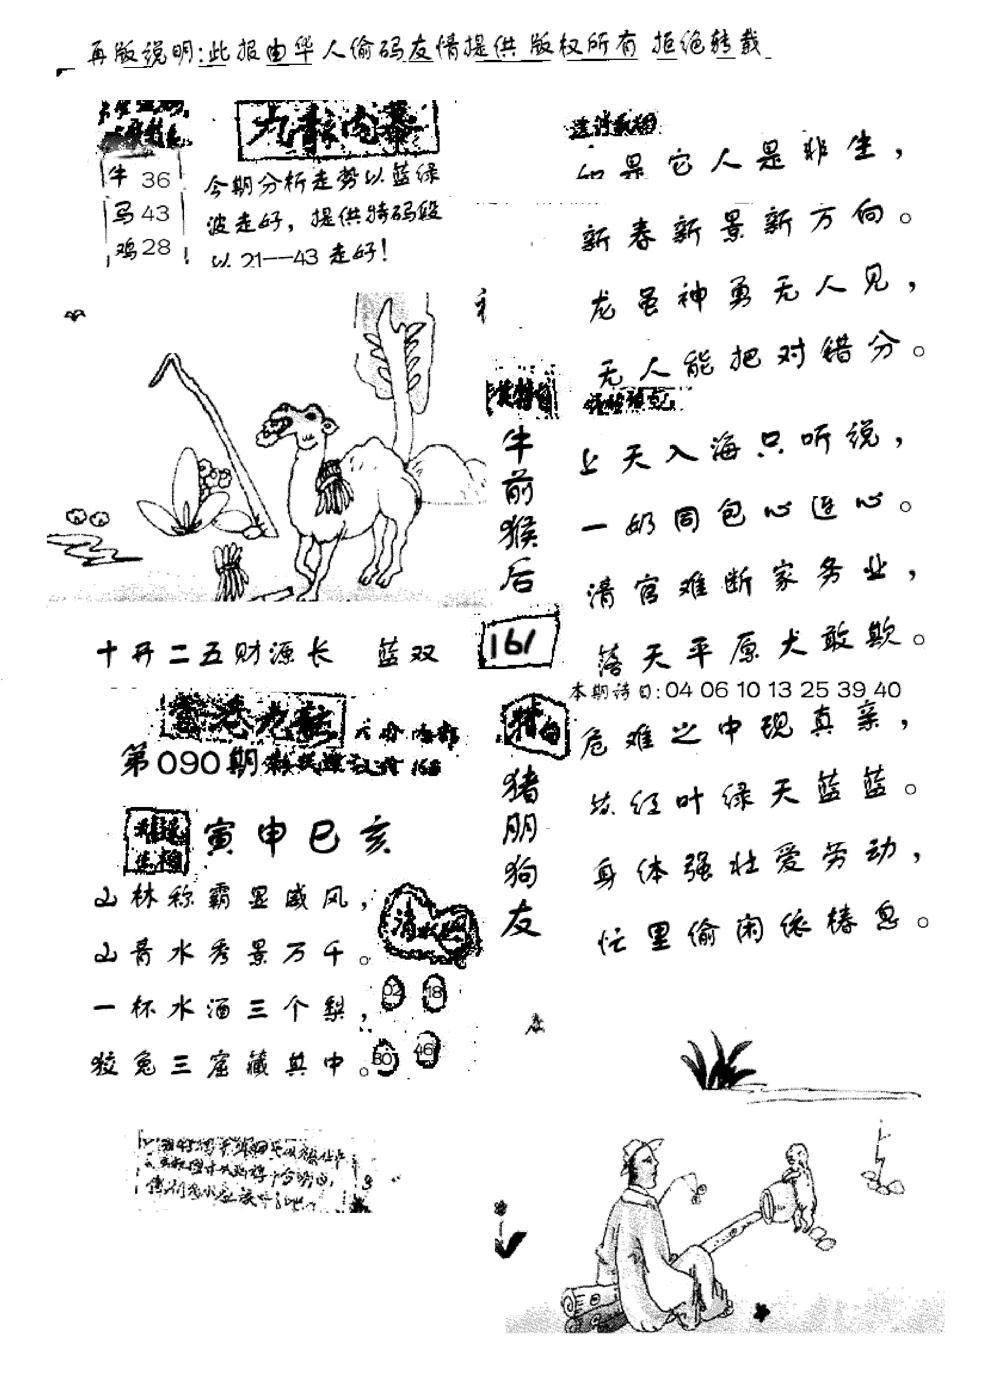 再版说明:此报由华人偷码友情提供 版权所有 拒绝转载
九龍内幕
牛 36
马 43
鸡 28
今期分析走势以蓝绿
波走好，提供特码段
以21--43走好!
十开二五财源长 蓝双
香港九龍
第090期
寅申巳亥
山林称霸显威风，
山青水秀景万千。
一杯水酒三个梨，
狡兔三窟藏其中。
02 18
30 46
如果它人是非生，
新春新景新万向。
龙虽神勇无人见，
无人能把对错分。
牛前猴后
161
上天入海只听说，
一奶同包心连心。
清官难断家务业，
落天平原犬敢欺。
本期诗日:04 06 10 13 25 39 40
特白
猪朋狗友
危难之中现真亲，
红叶绿天蓝蓝。
身体强壮爱劳动，
忙里偷闲依椿息。